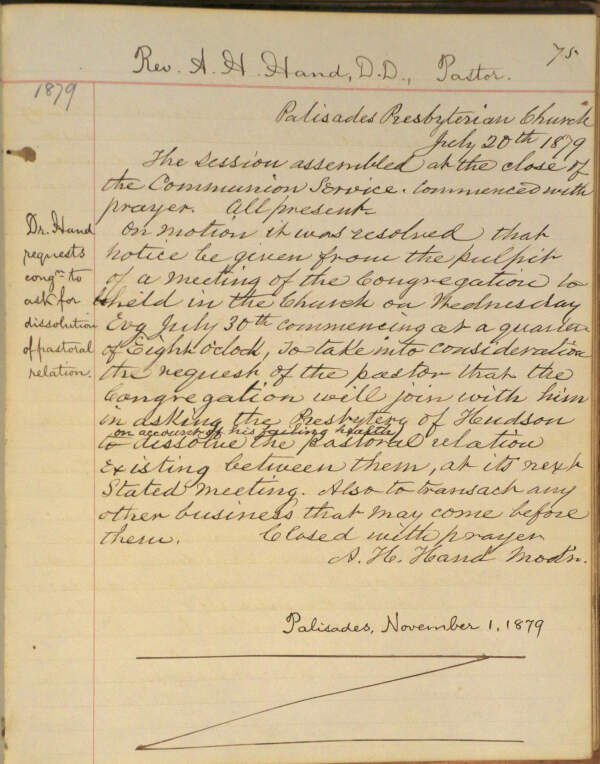 75
Rev. A. H. Hand, D.D., Pastor.
1879
Palisades Presbyterian Church
July 20th 1879
The Session assembled at the close of
the Communion Service. Commenced with
prayer. All present.
On motion it was resolved that
notice be given from the pulpit
of a meeting of the Congregation to
be held in the Church on Wednesday
Evg July 30th commencing at a quarter
of Eight o'clock, to take into consideration
the request of the pastor that the
Congregation will join with him
in asking the Presbytery of Hudson
on account of his failing health
to dissolve the pastoral relation
existing between them, at its next
Stated meeting. Also to transact any
other business that may come before
them. Closed with prayer
A. H. Hand Modr.
Dr. Hand
requests
congn. to
ask for
dissolution
of pastoral
relation.
Palisades, November 1, 1879